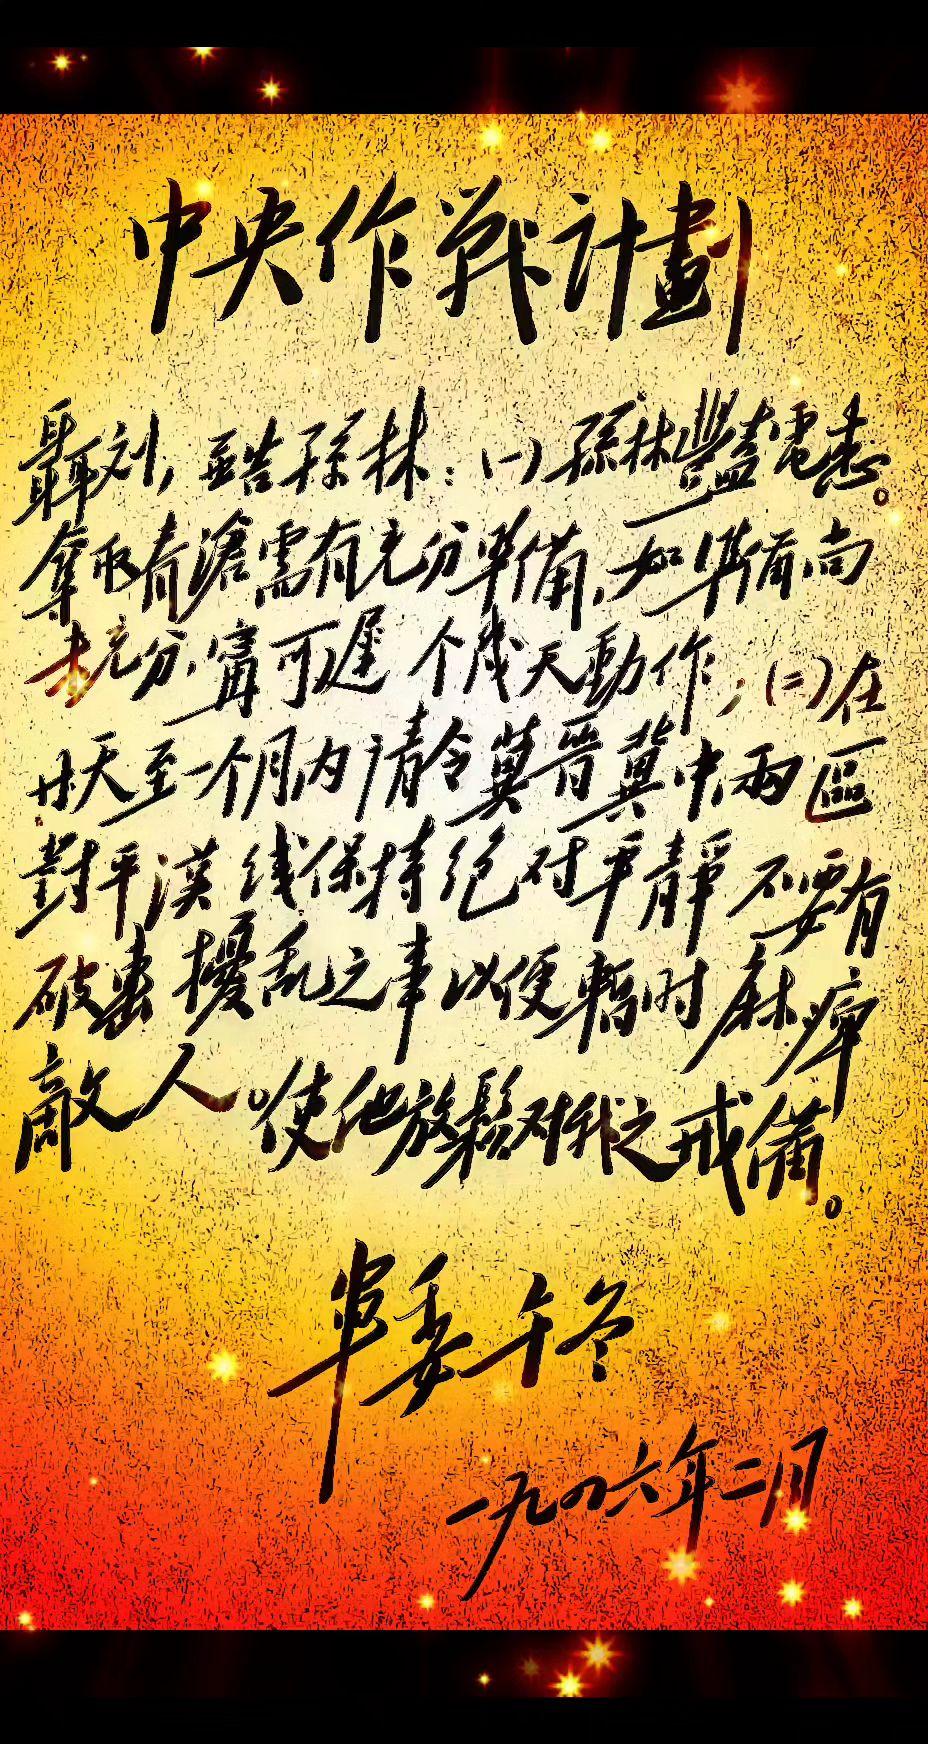 中央作战計劃
聶刘，並告孫林：（一）孫林豔電悉。
奪取青滄需有充分準備，如準備尚
未充分，寧可遲个幾天動作；（二）在
天至一个月内请令冀晋冀中两區
對平漢线保持绝对平靜不要有
破壞擾乱之事以便暫时麻痺
敵人。使他放鬆对我之戒備。
軍委午冬
一九四六年二月